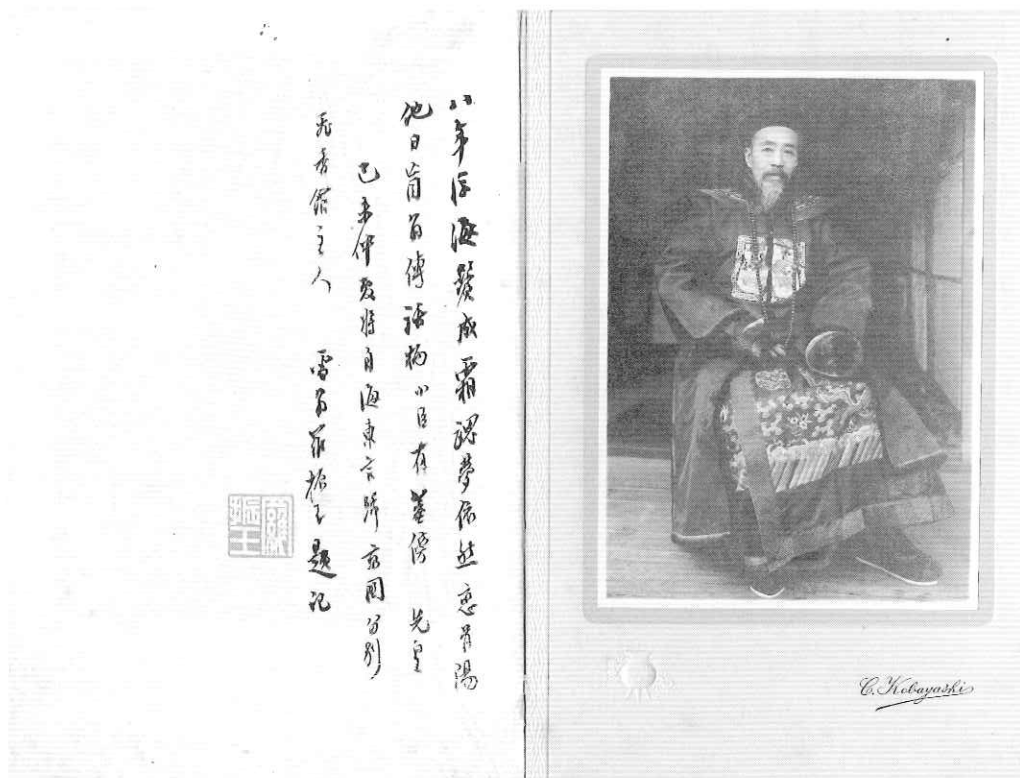 八年浮海鬢成霜魂夢依然戀首陽
他日盲翁傳話柄小臣有墓傍 先皇
己未仲夏將自海東言歸國分別
香館主人 雪翁羅振玉題記
羅振玉
C. Kobayashi